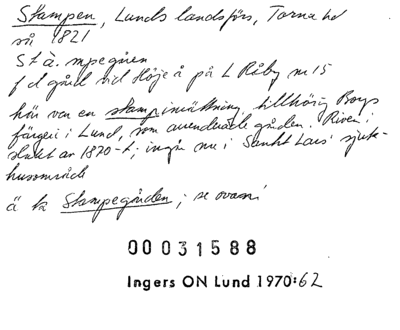 Stampen, Lunds landsförs, Torna hd
så 1821
St à. mpegåren
f d gård vid Höje å på L Råby nr 15
här var en stampinrättning, tillhörig Borgs
färgeri i Lund, som använde gården. Riven i
slutet av 1870-t; ingår nu i Sankt Lars' sjuk-
husområde
ä ka Stampegården; se ovan!
00031588
Ingers ON Lund 1970:62